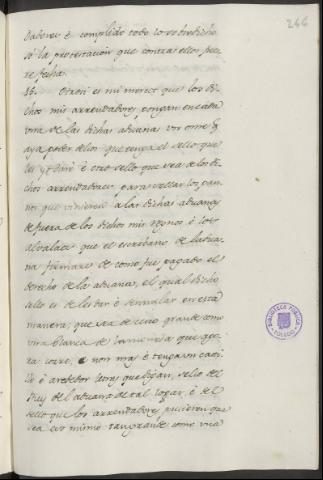 246
daberes é complido todo lo sobredicho
só la protestacion que contra ellos fue
re fecha.
35. Otrosi es mi merced que los di-
chos mis arrendadores, pongan en cada
una de las dichas aduanas un ome q
aya poder dellos que tenga el sello que
les yo diere é otro sello que sea de los di-
chos arrendadores para sellar los pan-
nos que vinieren a las dichas aduanas
de fuera de los dichos mis regnos é los
alvalaes que el escribano de la dua-
na firmare de como fue pagado el
derecho de la aduana, el qual dicho
sello es de estar é sennalar en esta
manera, que sea de cerco grande como
una blanca de
corre, é non mas é tengan casti-
llo é arededor letras que digan, sello del
Rey del aduana de tal logar, é el
sello que los arrendadores pusieren que
sea eso mismo tan grande como una
BIBLIOTECA PÚBLICA
TOLEDO